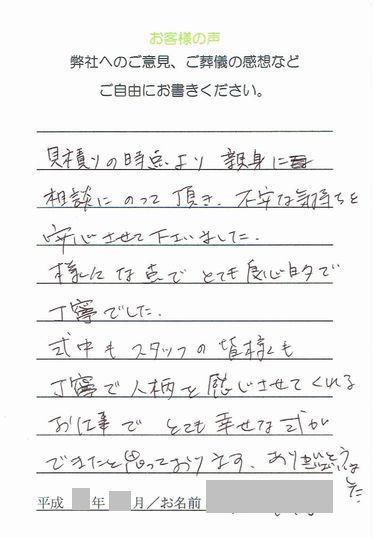 お客様の声
弊社へのご意見、ご葬儀の感想など
ご自由にお書きください。
見積りの時点より 親身に
相談にのって頂き、不安な気持ちを
安心させて下さいました。
様々な点で とても良心的で
丁寧でした。
式中も スタッフの 皆様も
丁寧で人柄を感じさせてくれる
お仕事で とても幸せな式が
できたと思っております。ありがとうございました
平成 年 月/お名前